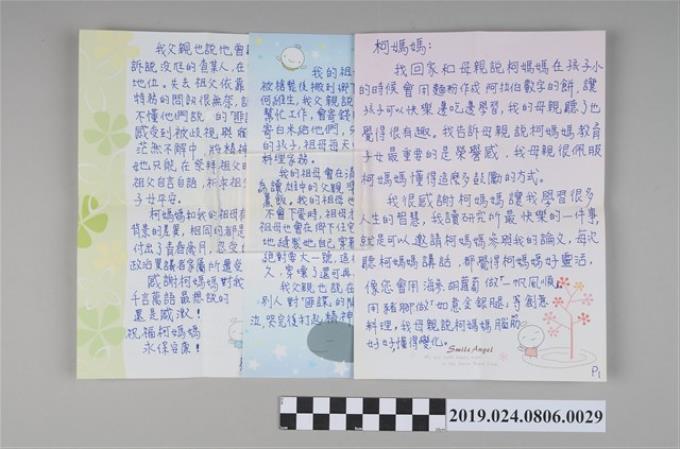 柯媽媽:
我回家和母親說柯媽媽在孩子小
的時候會用麵粉作成阿拉伯數字的餅,讓
孩子可以快樂邊吃邊學習,我的母親聽了也
覺得很有趣。我告訴母親說柯媽媽教育
子女最重要的是榮譽感,我母親很佩服
柯媽媽懂得這麼多鼓勵的方式。
我很感謝柯媽媽讓我學習很多
人生的智慧,我讀研究所最快樂的一件事,
就是可以邀請柯媽媽參與我的論文,每次
聽柯媽媽講話,都覺得柯媽媽好靈活,
像您會用海參、胡蘿蔔做"一帆風順",
用豬腳做"如意金銀腿"等創意
料理,我母親說柯媽媽腦筋
好好懂得變化。
Smile Angel
P1
我的祖
被槍斃後搬到鄉下
何維生,我父親說
幫忙工作,會寄錢
寄白米給他們,
的孩子,祖母每天
料理家務。
我的祖母會在清
為讀雄中的父親準
薰飯。我的祖母也
不會下雹時,祖母
祖母也會在鄉下住宅
地縫製她自己穿
絕對要大一號,這樣
久,穿壞了還可再
我父親也說在
別人對"匪諜"的
泣,哭完後打起精神
我父親也說他會
訴說沒底的查某人,在
地位。失去祖父依靠
特務的問訊很無奈,
不懂他們說的"匪諜
感受到被歧視與
茫然不解中,將精神
她只能在祭拜祖父時
祖父自言自語,祈求祖父
子女平安。
柯媽媽和我的祖母有
背景的差異,相同的都是
付出了青春歲月,忍受
政治案議者家屬所遭受
感謝柯媽媽對我
千言萬語最想說的
還是感激!
祝福柯媽媽
永保安康!
2019.024.0806.0029